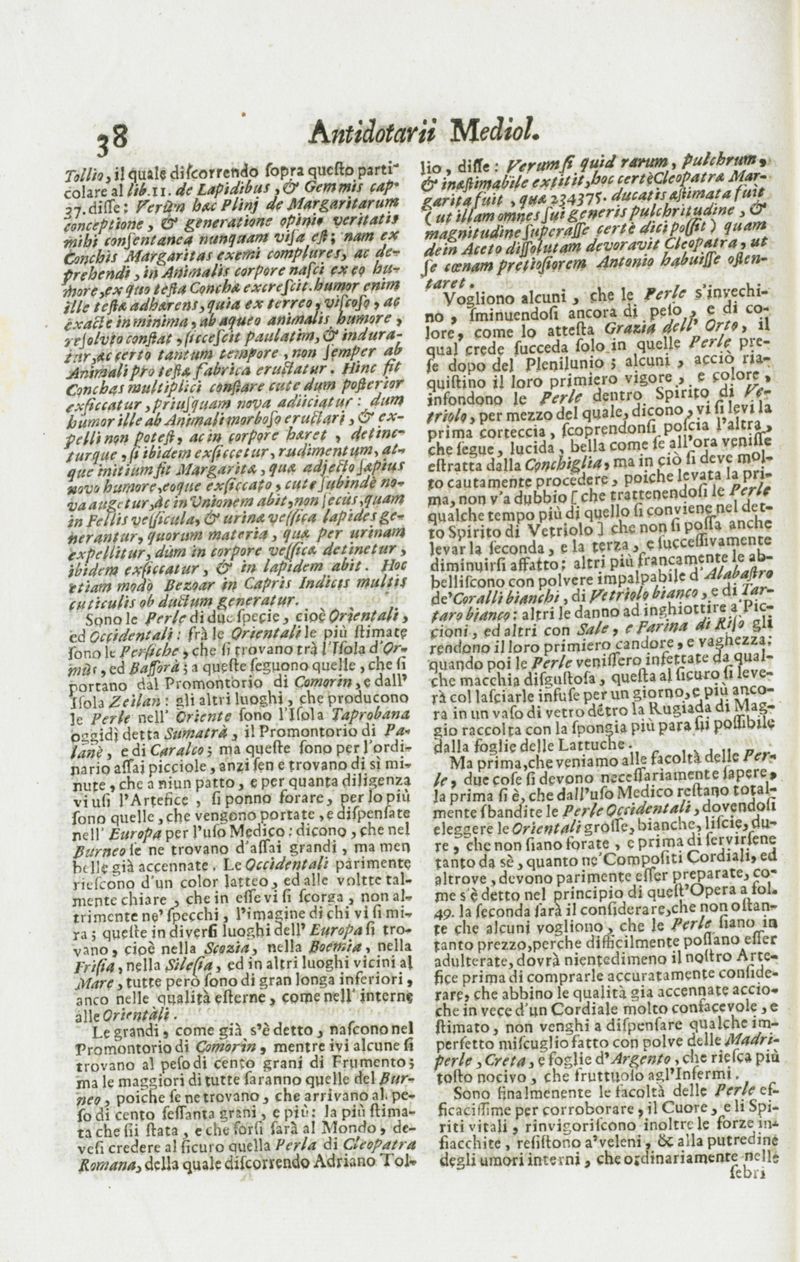 38
Antidotarii Mediol.
Tollio, il quale diſcorrendo ſopra queſto parti-
colare al lib. 11. de Lapidibus, & Gemmis cap.
37. diſſe: Verùm hæc Plinj de Margaritarum
conceptione, & generatione opinio veritatis
mihi conſentanea nunquam viſa eſt; nam ex
Conchis Margaritas exemi complures, ac de-
prehendi, in Animalis corpore naſci ex eo hu-
more, ex quo teſta Conchæ excreſcit. humor enim
ille teſtæ adhærens, quia ex terreo, viſcoſo, ac
exacte in minima, ab aqueo animalis humore,
reſoluto conſtat, ſicceſcit paulatim, & indura-
tur, ac certo tantum tempore, non ſemper ab
Animali pro teſtæ fabrica eructatur. Hinc fit
Conchas multiplici conſtare cute dum poſterior
exſiccatur, priuſquam nova adiiciatur: dum
humor ille ab Animali morboſo eructari, & ex-
pelli non poteſt, ac in corpore hæret, detine-
turque, ſi ibidem exſiccetur, rudimentum, at-
que initium fit Margaritæ, quæ adjecto ſæpius
novo humore, eoque exſiccato, cute ſubinde no-
va augetur, ac in Vnionem abit, non ſecùs, quam
in Fellis veſſicula, & urinæ veſſica lapides ge-
nerantur, quorum materia, quæ per urinam
expellitur, dum in corpore veſſicæ detinetur,
ibidem exſiccatur, & in lapidem abit. Hoc
etiam modo Bezoar in Capris Indicis multis
cuticulis ob ductum generatur.
Sono le Perle di due ſpecie, cioè Orientali,
ed Occidentali: frà le Orientali le più ſtimate
ſono le Perſiche, che ſi trovano trà l'Iſola d'Or-
mùs, ed Baſſorà; a queſte ſeguono quelle, che ſi
portano dal Promontorio di Comorin, e dall'
Iſola Zeilan: gli altri luoghi, che producono
le Perle nell' Oriente ſono l'Iſola Taprobana
oggidì detta Sumatrà, il Promontorio di Pa-
lanè, e di Caralco; ma queſte ſono per l'ordi-
nario aſſai picciole, anzi ſen e trovano di sì mi-
nute, che a niun patto, e per quanta diligenza
vi uſi l'Artefice, ſi ponno forare, per lo più
ſono quelle, che vengono portate, e diſpenſate
nell' Europa per l'uſo Medico: dicono, che nel
Burneo ſe ne trovano d'aſſai grandi, ma men
belle già accennate. Le Occidentali parimente
rieſcono d'un color latteo, ed alle voltte tal-
mente chiare, che in eſſe vi ſi ſcorga, non al-
trimente ne' ſpecchi, l'imagine di chi vi ſi mi-
ra; queſte in diverſi luoghi dell' Europa ſi tro-
vano, cioè nella Scozia, nella Boemia, nella
Friſia, nella Sileſia, ed in altri luoghi vicini al
Mare, tutte però ſono di gran longa inferiori,
anco nelle qualità eſterne, come nell' interne
alle Orientali.
Le grandi, come già s'è detto, naſcono nel
Promontorio di Comorin, mentre ivi alcune ſi
trovano al peſo di cento grani di Frumento;
ma le maggiori di tutte ſaranno quelle del Bur-
neo, poiche ſe ne trovano, che arrivano al pe-
ſo di cento ſeſſanta grani, e più: la più ſtima-
ta che ſii ſtata, e che forſi ſarà al Mondo, de-
veſi credere al ſicuro quella Perla di Cleopatra
Romana, della quale diſcorrendo Adriano Tol-
lio, diſſe: Verum ſi quid rarum, pulchrum,
& inæſtimabile extitit, hoc certè Cleopatræ Mar-
garita fuit, quæ 234375. ducatis æſtimata fuit
(ut illam omnes ſui generis pulchritudine, &
magnitudine ſuperaſſe certè dici poſſit) quam
dein Aceto diſſolutam devoravit Cleopatra, ut
ſe cœnam pretioſiorem Antonio habuiſſe oſten-
taret.
Vogliono alcuni, che le Perle s'invechi-
no, ſminuendoſi ancora di peſo, e di co-
lore, come lo atteſta Grazia dell' Orto, il
qual crede ſucceda ſolo in quelle Perle pre-
ſe dopo del Plenilunio; alcuni, acciò ria-
quiſtino il loro primiero vigore, e colore,
infondono le Perle dentro Spirito di Ve-
triolo, per mezzo del quale, dicono, vi ſi levi la
prima corteccia, ſcoprendonſi poſcia l'altra,
che ſegue, lucida, bella come ſe all'ora veniſſe
eſtratta dalla Conchiglia, ma in ciò ſi deve mol-
to cautamente procedere, poiche levata la pri-
ma, non v'a dubbio [ che trattenendoſi le Perle
qualche tempo più di quello ſi conviene nel det-
to Spirito di Vetriolo ] che non ſi poſſa anche
levar la ſeconda, e la terza, e ſucceſſivamente
diminuirſi affatto; altri più francamente le ab-
belliſcono con polvere impalpabile d'Alabaſtro
de' Coralli bianchi, di Vetriolo bianco, e di Tar-
taro bianco: altri le danno ad inghiottire a Pic-
cioni, ed altri con Sale, e Farina di Riſo gli
rendono il loro primiero candore, e vaghezza;
quando poi le Perle veniſſero infettate da qual-
che macchia diſguſtoſa, queſta al ſicuro ſi leve-
rà col laſciarle infuſe per un giorno, e più anco-
ra in un vaſo di vetro dẽtro la Rugiada di Mag-
gio raccolta con la ſpongia più para ſii poſſibile
dalla foglie delle Lattuche.
Ma prima, che veniamo alle facoltà delle Per-
le, due coſe ſi devono neceſſariamente ſapere,
la prima ſi è, che dall'uſo Medico reſtano total-
mente ſbandite le Perle Occidentali, dovendoſi
eleggere le Orientali groſſe, bianche, liſcie, du-
re, che non ſiano forate, e prima di ſervirſene
tanto da sè, quanto ne' Compoſiti Cordiali, ed
altrove, devono parimente eſſer preparate, co-
me s'è detto nel principio di queſt'Opera a fol.
49. la ſeconda ſarà il conſiderare, che non oſtan-
te che alcuni vogliono, che le Perle ſiano in
tanto prezzo, perche difficilmente poſſano eſſer
adulterate, dovrà nientedimeno il noſtro Arte-
fice prima di comprarle accuratamente conſide-
rare, che abbino le qualità gia accennate accio-
che in vece d'un Cordiale molto confacevole, e
ſtimato, non venghi a diſpenſare qualche im-
perfetto miſcuglio fatto con polve delle Madri-
perle, Creta, e foglie d'Argento, che rieſca più
toſto nocivo, che fruttuoſo agl'Infermi.
Sono finalmenente le facoltà delle Perle ef-
ficaciſſime per corroborare, il Cuore, e li Spi-
riti vitali, rinvigoriſcono inoltre le forze in-
fiacchite, reſiſtono a'veleni, & alla putredine
degli umori interni, che ordinariamente nelle
febri